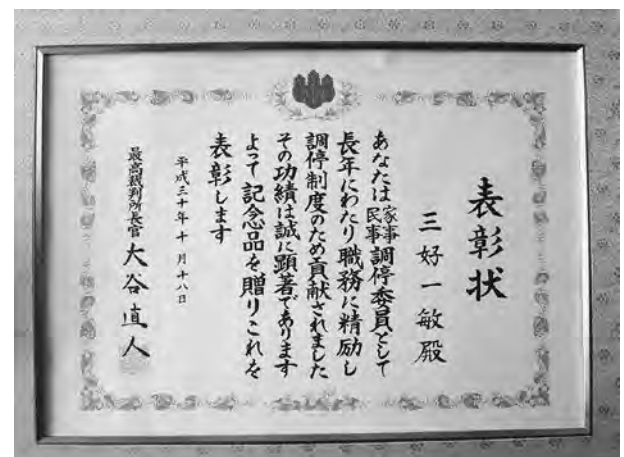 表彰状
三好一敏殿
あなたは家事民事調停委員として
長年にわたり職務に精励し
調停制度のため貢献されました
その功績は誠に顕著であります
よって記念品を贈りこれを
表彰します
平成三十年十月十八日
最高裁判所長官 大谷直人